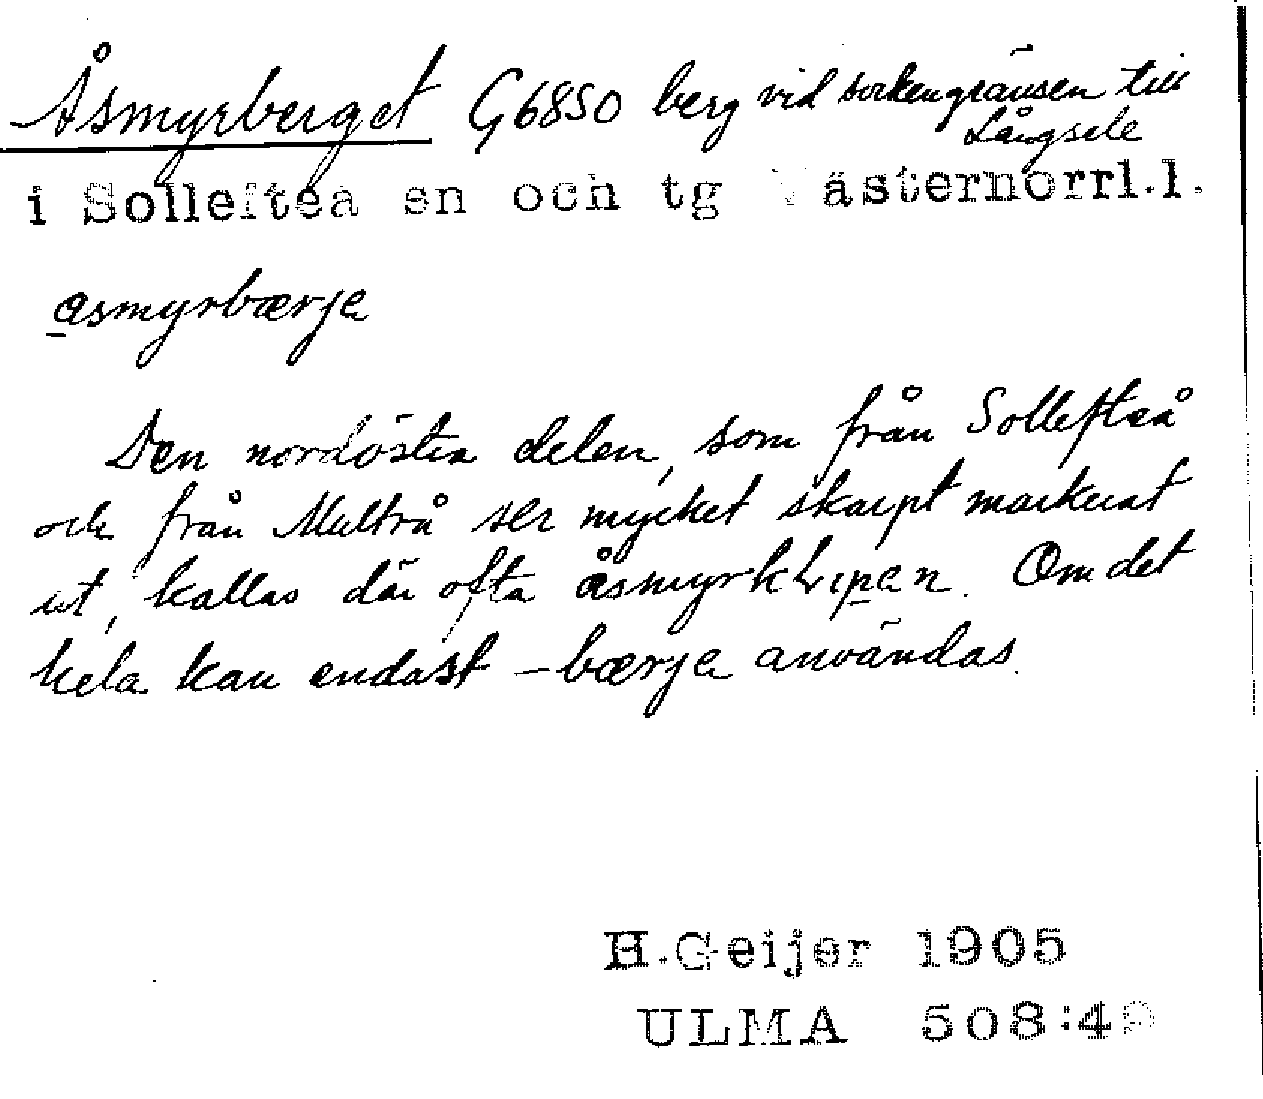 Åsmyrberget G6850 berg vid sockengränsen till
Långsele
i Solleftea sn och tg Västernorrl.l.
åsmyrbærje
Den nordöstra delen, som från Sollefteå
och från Multrå ser mycket skarpt markerat
ut, kallas där ofta åsmyrklıpen. Om det
hela kan endast -bærje användas.
H.Geijer 1905
ULMA 508:49